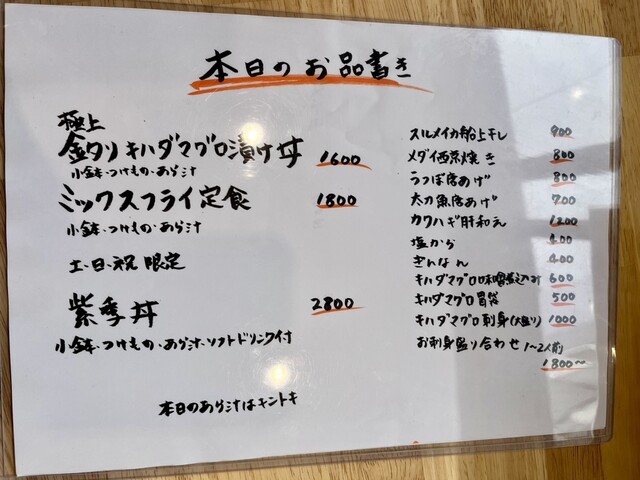 本日のお品書き
極上
釣りキハダマグロ漬け丼 1600
小鉢・つけもの・あら汁
ミックスフライ定食 1800
小鉢・つけもの・あら汁
土・日・祝 限定
紫季丼 2800
小鉢・つけもの・あら汁・ソフトドリンク付
本日のあら汁はキントキ
スルメイカ船上干し 900
メダイ西京焼き 800
うつぼ唐あげ 800
太刀魚唐あげ 700
カワハギ肝和え 1200
塩から 400
ぎんなん 400
キハダマグロ味噌煮込み 600
キハダマグロ胃袋 500
キハダマグロ刺身(大盛り) 1000
お刺身盛り合わせ 1~2人前
1800~